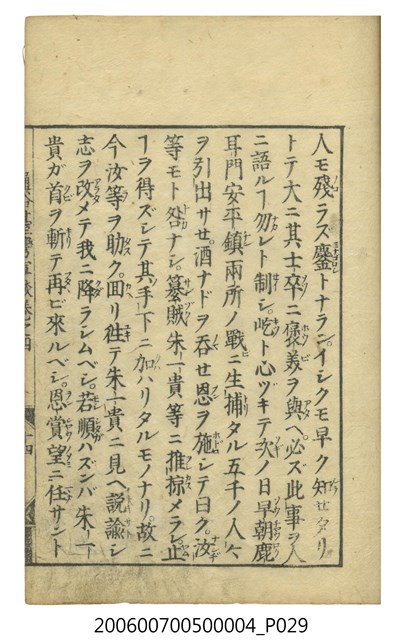 人モ殘ラズ鏖トナラン。イシクモ早ク知セタリ
トテ大ニ其士卒ニ褒美ヲ與ヘ必ズ此事ヲ人
ニ語ルヿ勿レト制シ。屹ト心ヅキテ次ノ日早朝鹿
耳門安平鎮兩所ノ戰ニ生捕タル五千ノ人々
ヲ引出サセ。酒ナドヲ呑セ恩ヲ施シテ曰ク。汝
等モト咎ナシ。簒賊朱一貴等ニ推掠メラレ止
ヿヲ得ズシテ其手下ニ加ハリタルモノナリ。故ニ
今汝等ヲ助ク。回リ往テ朱一貴ニ見ヘ説諭シ
志ヲ改メテ我ニ降ラシムベシ。若順ハズンバ朱一
貴ガ首ヲ斬テ再ビ來ルベシ。恩賞望ニ任サント
十四
200600700500004_P029